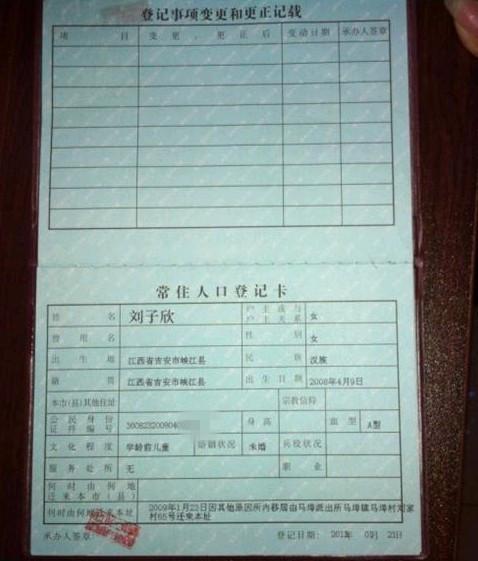 登记事项变更和更正记载
项 目 变更、更正后 变动日期 承办人签章
常住人口登记卡
姓 名 刘子欣 户主或与户主关系 女
曾用名 性 别 女
出生地 江西省吉安市峡江县 民 族 汉族
籍 贯 江西省吉安市峡江县 出生日期 2008年4月9日
本市(县)其他住址 宗教信仰
公民身份证件编号 身 高 血型 A型
文化程度 学龄前儿童 婚姻状况 未婚 兵役状况
服务处所 无 职 业
何时由何地迁来本市(县)
何时由何地迁来本址 2009年1月23日因其他原因所内移居由马埠派出所马埠镇马埠村刘家村65号迁来本址
承办人签章: 登记日期: